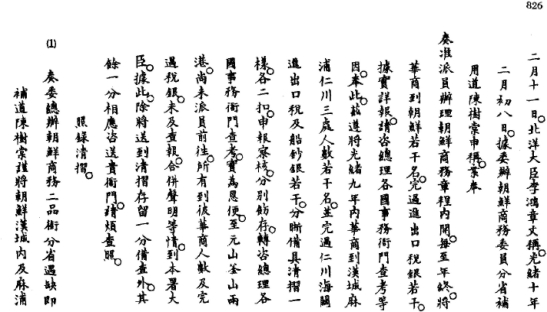 826
二月十一日。北洋大臣李鴻章文稱。光緒十年
二月初八日。據委辦朝鮮商務委員分省補
用道陳樹棠申稱。案奉
奏准派員辦理朝鮮商務章程內開。每至年終。將
華商到朝鮮若干名。完過進出口稅銀若干。
據實詳報。請咨總理各國事務衙門查考等
因。奉此。茲遵將光緒九年內華商到漢城麻
浦仁川三處人數若干名。並完過仁川海關
進出口稅及船鈔銀若干。分晰備具清摺一
樣。各二扣。申報察核。分別飭存。轉咨總理各
國事務衙門查考。實為恩便。至元山釜山兩
港。尚未派員前往。所有到彼華商人數及完
過稅銀。未及查報。合併聲明等情。到本署大
臣。據此。除將送到清摺存留一分備查外。其
餘一分相應咨送貴衙門。請煩查照。
照錄清摺。
(1) 奏委總辦朝鮮商務二品銜分省遇缺即
補道陳樹棠謹將朝鮮漢城內及麻浦